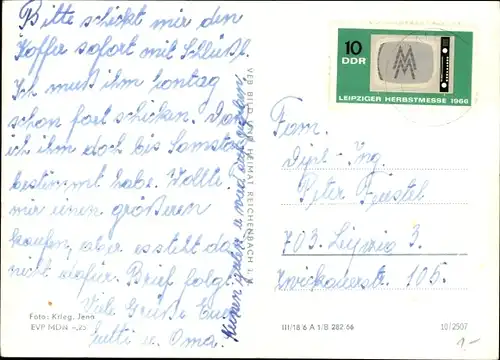 Bitte schickt mir den
Koffer sofort mit Schlüßl.
Ich muß ihm Sontag
schon fort schicken. Daß
ich ihm doch bis Samstag
bestimmt habe. Wollte
mir einen größeren
kaufen, aber es steht da
nicht dafür. Brief folgt.
Viele Grüße Eure
u. Oma.
Foto: Krieg, Jena
EVP MDN -,25
VEB BILD UND HEIMAT REICHENBACH I. V.
10
DDR
MM
LEIPZIGER HERBSTMESSE 1966
Fam.
Dipl.-Ing.
Peter
703 Leipzig 3.
Zwickauerstr. 105.
III/18/6 A 1/B 282/66
10/2507
1.-